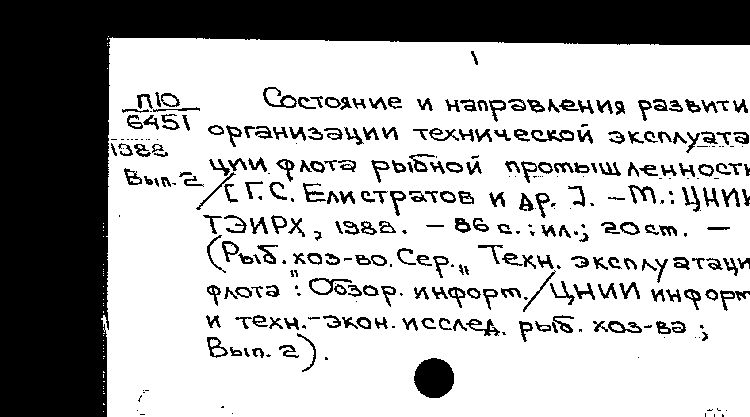 1
П10
6451
1988
Вып. 2
Состояние и направления развити
организации технической эксплуата
ции флота рыбной промышленност
/ [Г.С. Елистратов и др.]. – М.: ЦНИИ
ТЭИРХ, 1988. – 86 с.: ил.; 20 см. –
(Рыб. хоз-во. Сер. „Техн. эксплуатаци
флота": Обзор. информ. / ЦНИИ информ
и техн.-экон. исслед. рыб. хоз-ва;
Вып. 2).